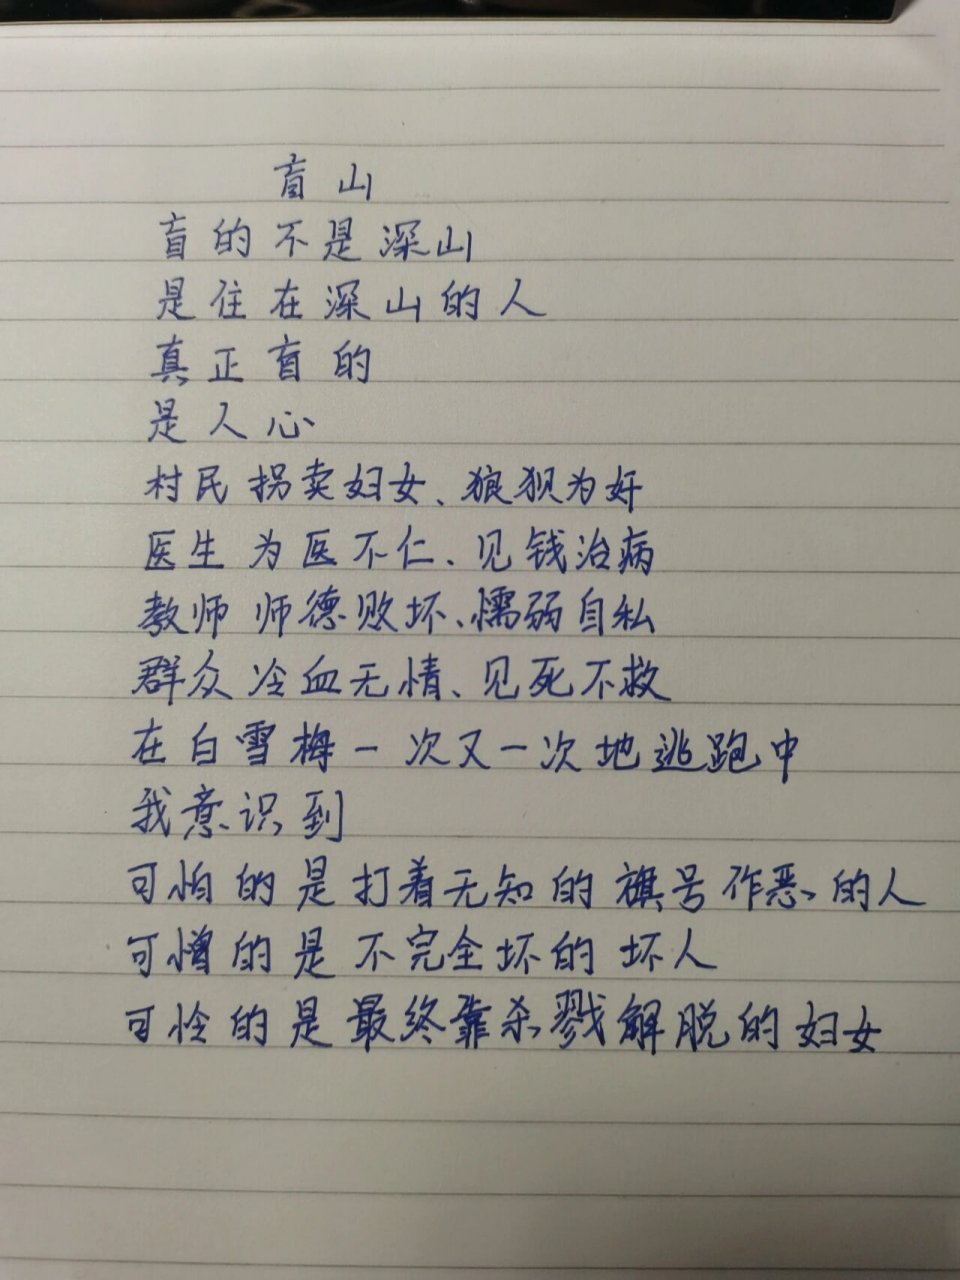 盲山
盲的不是深山
是住在深山的人
真正盲的
是人心
村民 拐卖妇女、狼狈为奸
医生 为医不仁、见钱治病
教师 师德败坏、懦弱自私
群众 冷血无情、见死不救
在白雪梅一次又一次地逃跑中
我意识到
可怕的是打着无知的旗号作恶的人
可憎的是不完全坏的坏人
可怜的是最终靠杀戮解脱的妇女